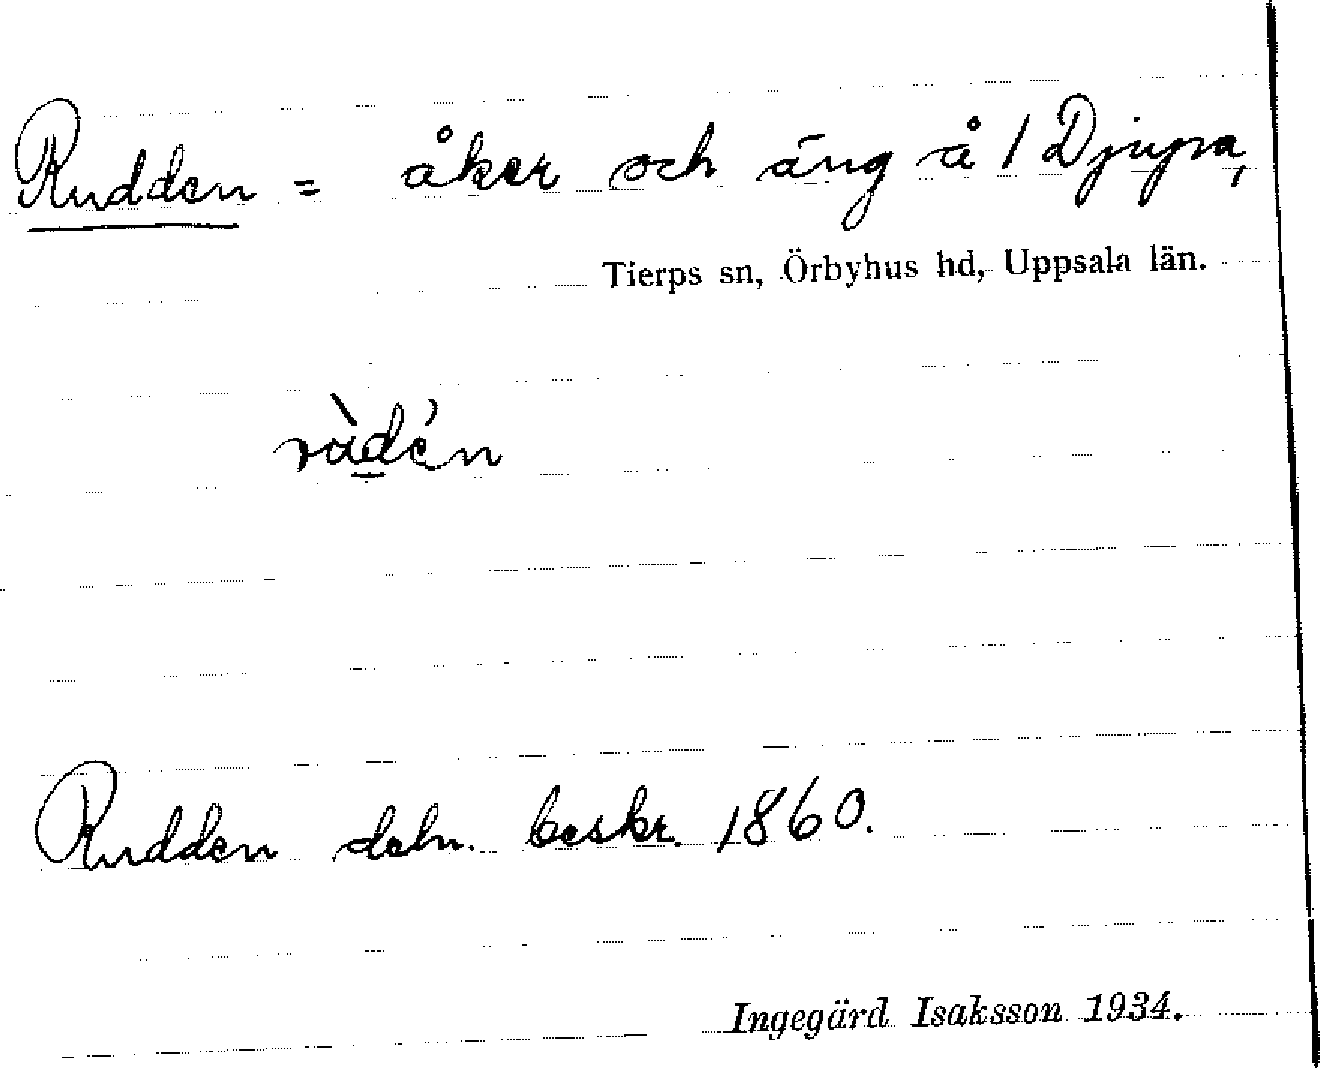 Rudden = åker och äng å 1 Djupa,
Tierps sn, Örbyhus hd, Uppsala län.
ràdén
Rudden deln. beskr. 1860.
Ingegärd Isaksson 1934.